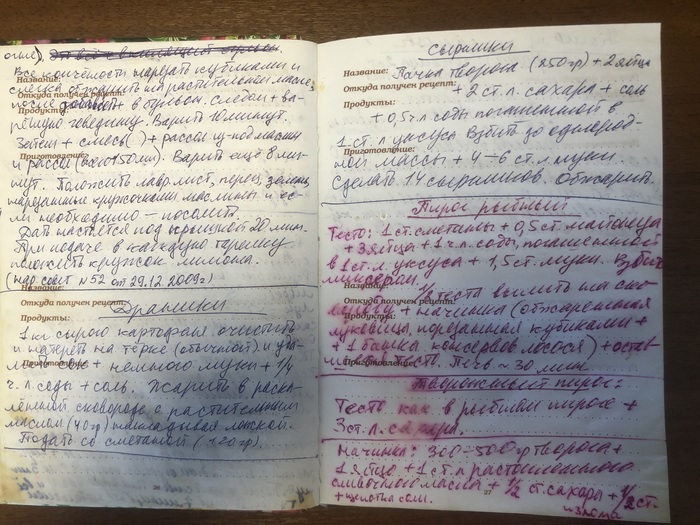 Все копчёности нарезать кубиками и
слегка обжарить на растительном масле,
после добавить в бульон. Следом + ва-
реную говядину. Варить 10 минут.
Затем + смесь ( ) + рассол из-под маслин
и рассол (всего 150 мл). Варить ещё 8 ми-
нут. Положить лавр. лист, перец, зелень,
нарезанные кружочками маслины и ес-
ли необходимо – посолить.
Дать настояться под крышкой 20 мин.
При подаче в каждую тарелку
положить кружок лимона.
(нар. совет №52 от 29.12.2009г)
Название:
Откуда получен рецепт:
Драники
Продукты:
1 кг сырого картофеля очистить
и натереть на тёрке (обычной) и
+ немного муки + 1/4
Приготовление:
ч. л соды + соль. Жарить в раска-
лённой сковороде с растительным
маслом (40г) накладывая ложкой.
Подать со сметаной (120гр).
Сырники
Название:
Пачка творога (250гр) + 2 яйца
Откуда получен рецепт:
+ 2 ст. л. сахара + соль
Продукты:
+ 0,5 ч. л соды погашенной в
1 ст. л уксуса Взбить до однород-
Приготовление:
ной массы + 4-6 ст. л. муки.
Сделать 14 сырников. Обжарить.
Пирог рыбный
Тесто: 1 ст. сметаны + 0,5 ст. майонеза
+ 3 яйца + 1 ч. л. соды, погашенной
в 1 ст. л уксуса + 1,5 ст. муки. Взбить
миксером.
Название:
1/2 теста вылить на ско-
вороду + начинка (обжаренная
Продукты:
луковица, порезанная кубиками +
+ 1 банка консервов лосося) + остав-
Приготовление:
тесто. Печь ~ 30 мин.
Творожный пирог:
Тесто как в рыбном пироге +
3 ст. л. сахара.
Начинка: 300-500 гр творога +
1 яйцо + 1 ст. л растопленного
сливочного масла + 1/2 ст. сахара + 1/2 ст.
изюма
+ щепотка соли.
27